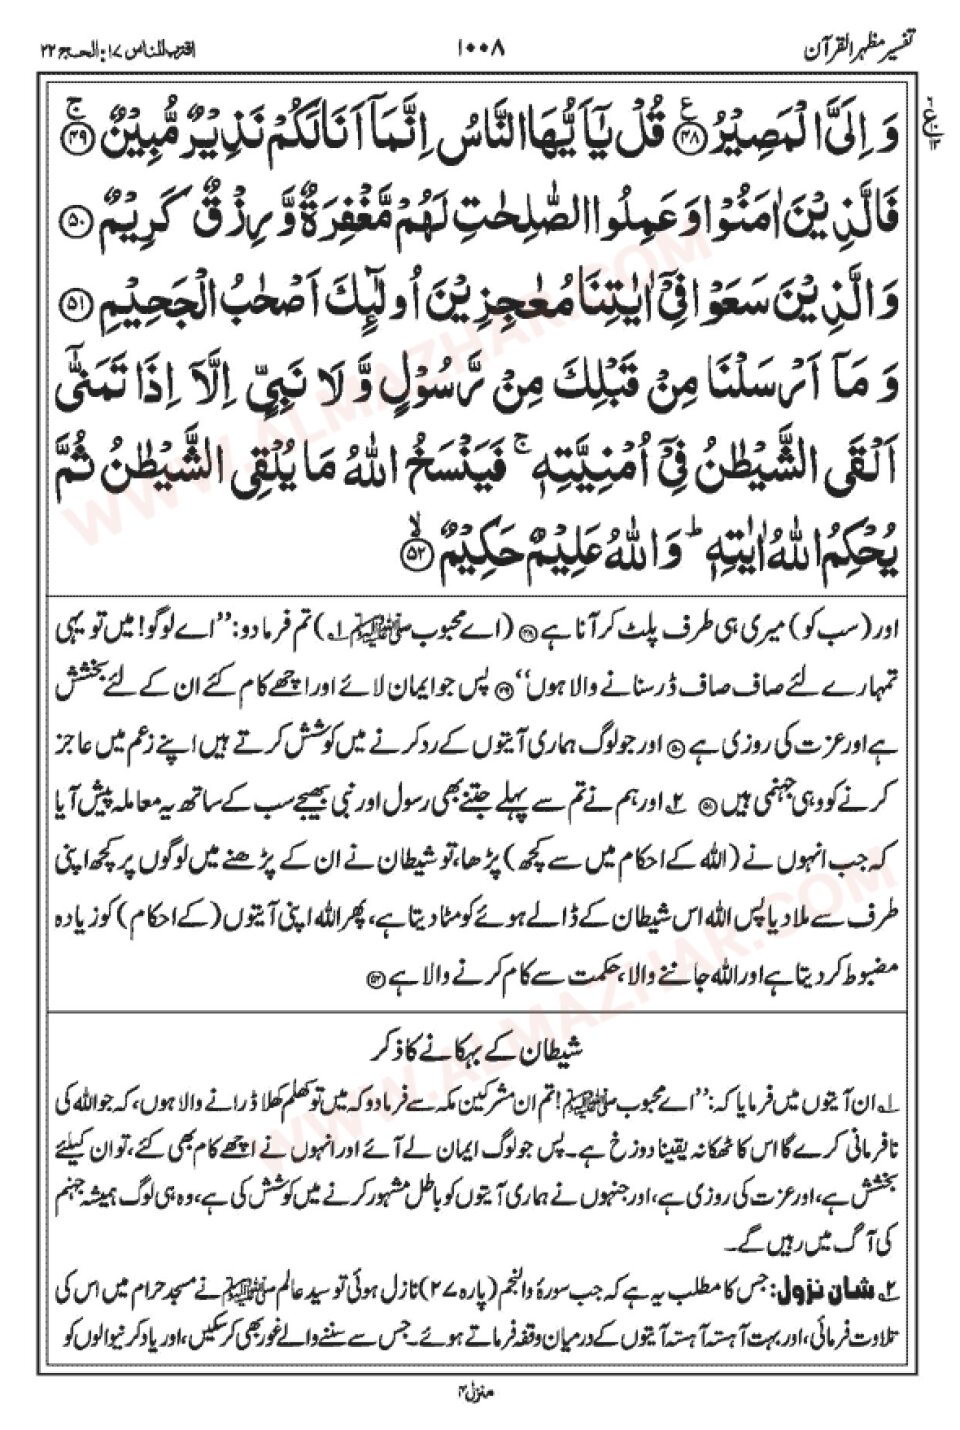 تفسیر مظہرالقرآن
۱۰۰۸
اقترب للناس ۱۷: الحج ۲۲
وَ اِلَیَّ الْمَصِیْرُ ﴿۴۸﴾ قُلْ یٰۤاَیُّهَا النَّاسُ اِنَّمَاۤ اَنَا لَكُمْ نَذِیْرٌ مُّبِیْنٌ ﴿۴۹﴾
فَالَّذِیْنَ اٰمَنُوْا وَ عَمِلُوا الصّٰلِحٰتِ لَهُمْ مَّغْفِرَةٌ وَّ رِزْقٌ كَرِیْمٌ ﴿۵۰﴾
وَ الَّذِیْنَ سَعَوْا فِیْۤ اٰیٰتِنَا مُعٰجِزِیْنَ اُولٰٓىِٕكَ اَصْحٰبُ الْجَحِیْمِ ﴿۵۱﴾
وَ مَاۤ اَرْسَلْنَا مِنْ قَبْلِكَ مِنْ رَّسُوْلٍ وَّ لَا نَبِیٍّ اِلَّاۤ اِذَا تَمَنّٰۤی
اَلْقَی الشَّیْطٰنُ فِیْۤ اُمْنِیَّتِهٖ ۚ فَیَنْسَخُ اللّٰهُ مَا یُلْقِی الشَّیْطٰنُ ثُمَّ
یُحْكِمُ اللّٰهُ اٰیٰتِهٖ ؕ وَ اللّٰهُ عَلِیْمٌ حَكِیْمٌ ﴿۵۲﴾ۙ
اور (سب کو) میری ہی طرف پلٹ کر آنا ہے ﴿۴۸﴾ (اے محبوب ﷺ ۱) تم فرمادو: ’’اے لوگو! میں تو یہی
تمہارے لئے صاف صاف ڈر سنانے والا ہوں‘‘ ﴿۴۹﴾ پس جو ایمان لائے اور اچھے کام کئے ان کے لئے بخشش
ہے اور عزت کی روزی ہے ﴿۵۰﴾ اور جو لوگ ہماری آیتوں کے رد کرنے میں کوشش کرتے ہیں اپنے زعم میں عاجز
کرنے کو وہی جہنمی ہیں ﴿۵۱﴾ ۲ اور ہم نے تم سے پہلے جتنے بھی رسول اور نبی بھیجے سب کے ساتھ یہ معاملہ پیش آیا
کہ جب انہوں نے (اللہ کے احکام میں سے کچھ) پڑھا، تو شیطان نے ان کے پڑھنے میں لوگوں پر کچھ اپنی
طرف سے ملا دیا پس اللہ اس شیطان کے ڈالے ہوئے کو مٹا دیتا ہے، پھر اللہ اپنی آیتوں (کے احکام) کو زیادہ
مضبوط کر دیتا ہے اور اللہ جاننے والا، حکمت سے کام کرنے والا ہے ﴿۵۲﴾
شیطان کے بہکانے کا ذکر
۱ ان آیتوں میں فرمایا کہ: ’’اے محبوب ﷺ! تم ان مشرکین مکہ سے فرمادو کہ میں تو کھلم کھلا ڈرانے والا ہوں، کہ جو اللہ کی
نافرمانی کرے گا اس کا ٹھکانہ یقینا دوزخ ہے۔ پس جو لوگ ایمان لے آئے اور انہوں نے اچھے کام بھی کئے، تو ان کیلئے
بخشش ہے، اور عزت کی روزی ہے، اور جنہوں نے ہماری آیتوں کو باطل مشہور کرنے میں کوشش کی ہے، وہ ہی لوگ ہمیشہ جہنم
کی آگ میں رہیں گے۔
۲ شان نزول: جس کا مطلب یہ ہے کہ جب سورۂ والنجم (پارہ ۲۷) نازل ہوئی تو سید عالم ﷺ نے مسجد حرام میں اس کی
تلاوت فرمائی، اور بہت آہستہ آہستہ آیتوں کے درمیان وقفہ فرماتے ہوئے۔ جس سے سننے والے غور بھی کر سکیں، اور یاد کرنیوالوں کو
منزل ۴
WWW.ALMAZHAR.COM
WWW.ALMAZHAR.COM